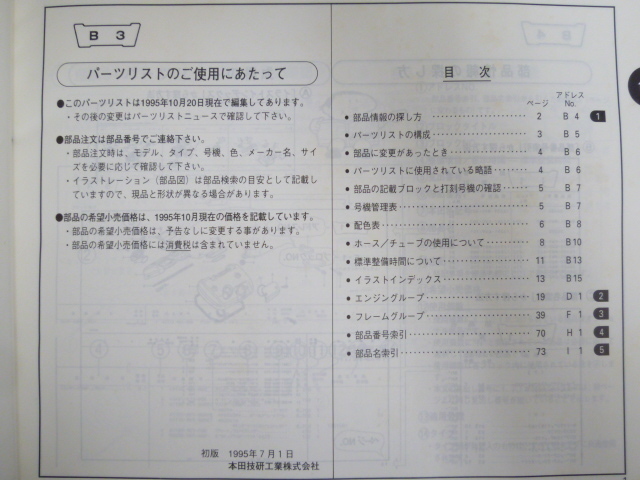 B 3
パーツリストのご使用にあたって
●このパーツリストは1995年10月20日現在で編集してあります。
・その後の変更はパーツリストニュースで確認して下さい。
●部品注文は部品番号でご連絡下さい。
・部品注文時は、モデル、タイプ、号機、色、メーカー名、サイ
ズを必要に応じて確認して下さい。
・イラストレーション（部品図）は部品検索の目安として記載し
ていますので、現品と形状が異なる場合があります。
●部品の希望小売価格は、1995年10月現在の価格を記載しています。
・部品の希望小売価格は、予告なしに変更する事があります。
・部品の希望小売価格には消費税は含まれていません。
初版 1995年7月1日
本田技研工業株式会社
目 次
ページ アドレス No.
● 部品情報の探し方 2 B 4 1
● パーツリストの構成 3 B 5
● 部品に変更があったとき 4 B 6
● パーツリストに使用されている略語 4 B 6
● 部品の記載ブロックと打刻号機の確認 5 B 7
● 号機管理表 5 B 7
● 配色表 6 B 8
● ホース／チューブの使用について 8 B10
● 標準整備時間について 11 B13
● イラストインデックス 13 B15
● エンジングループ 19 D 1 2
● フレームグループ 39 F 1 3
● 部品番号索引 70 H 1 4
● 部品名索引 73 I 1 5